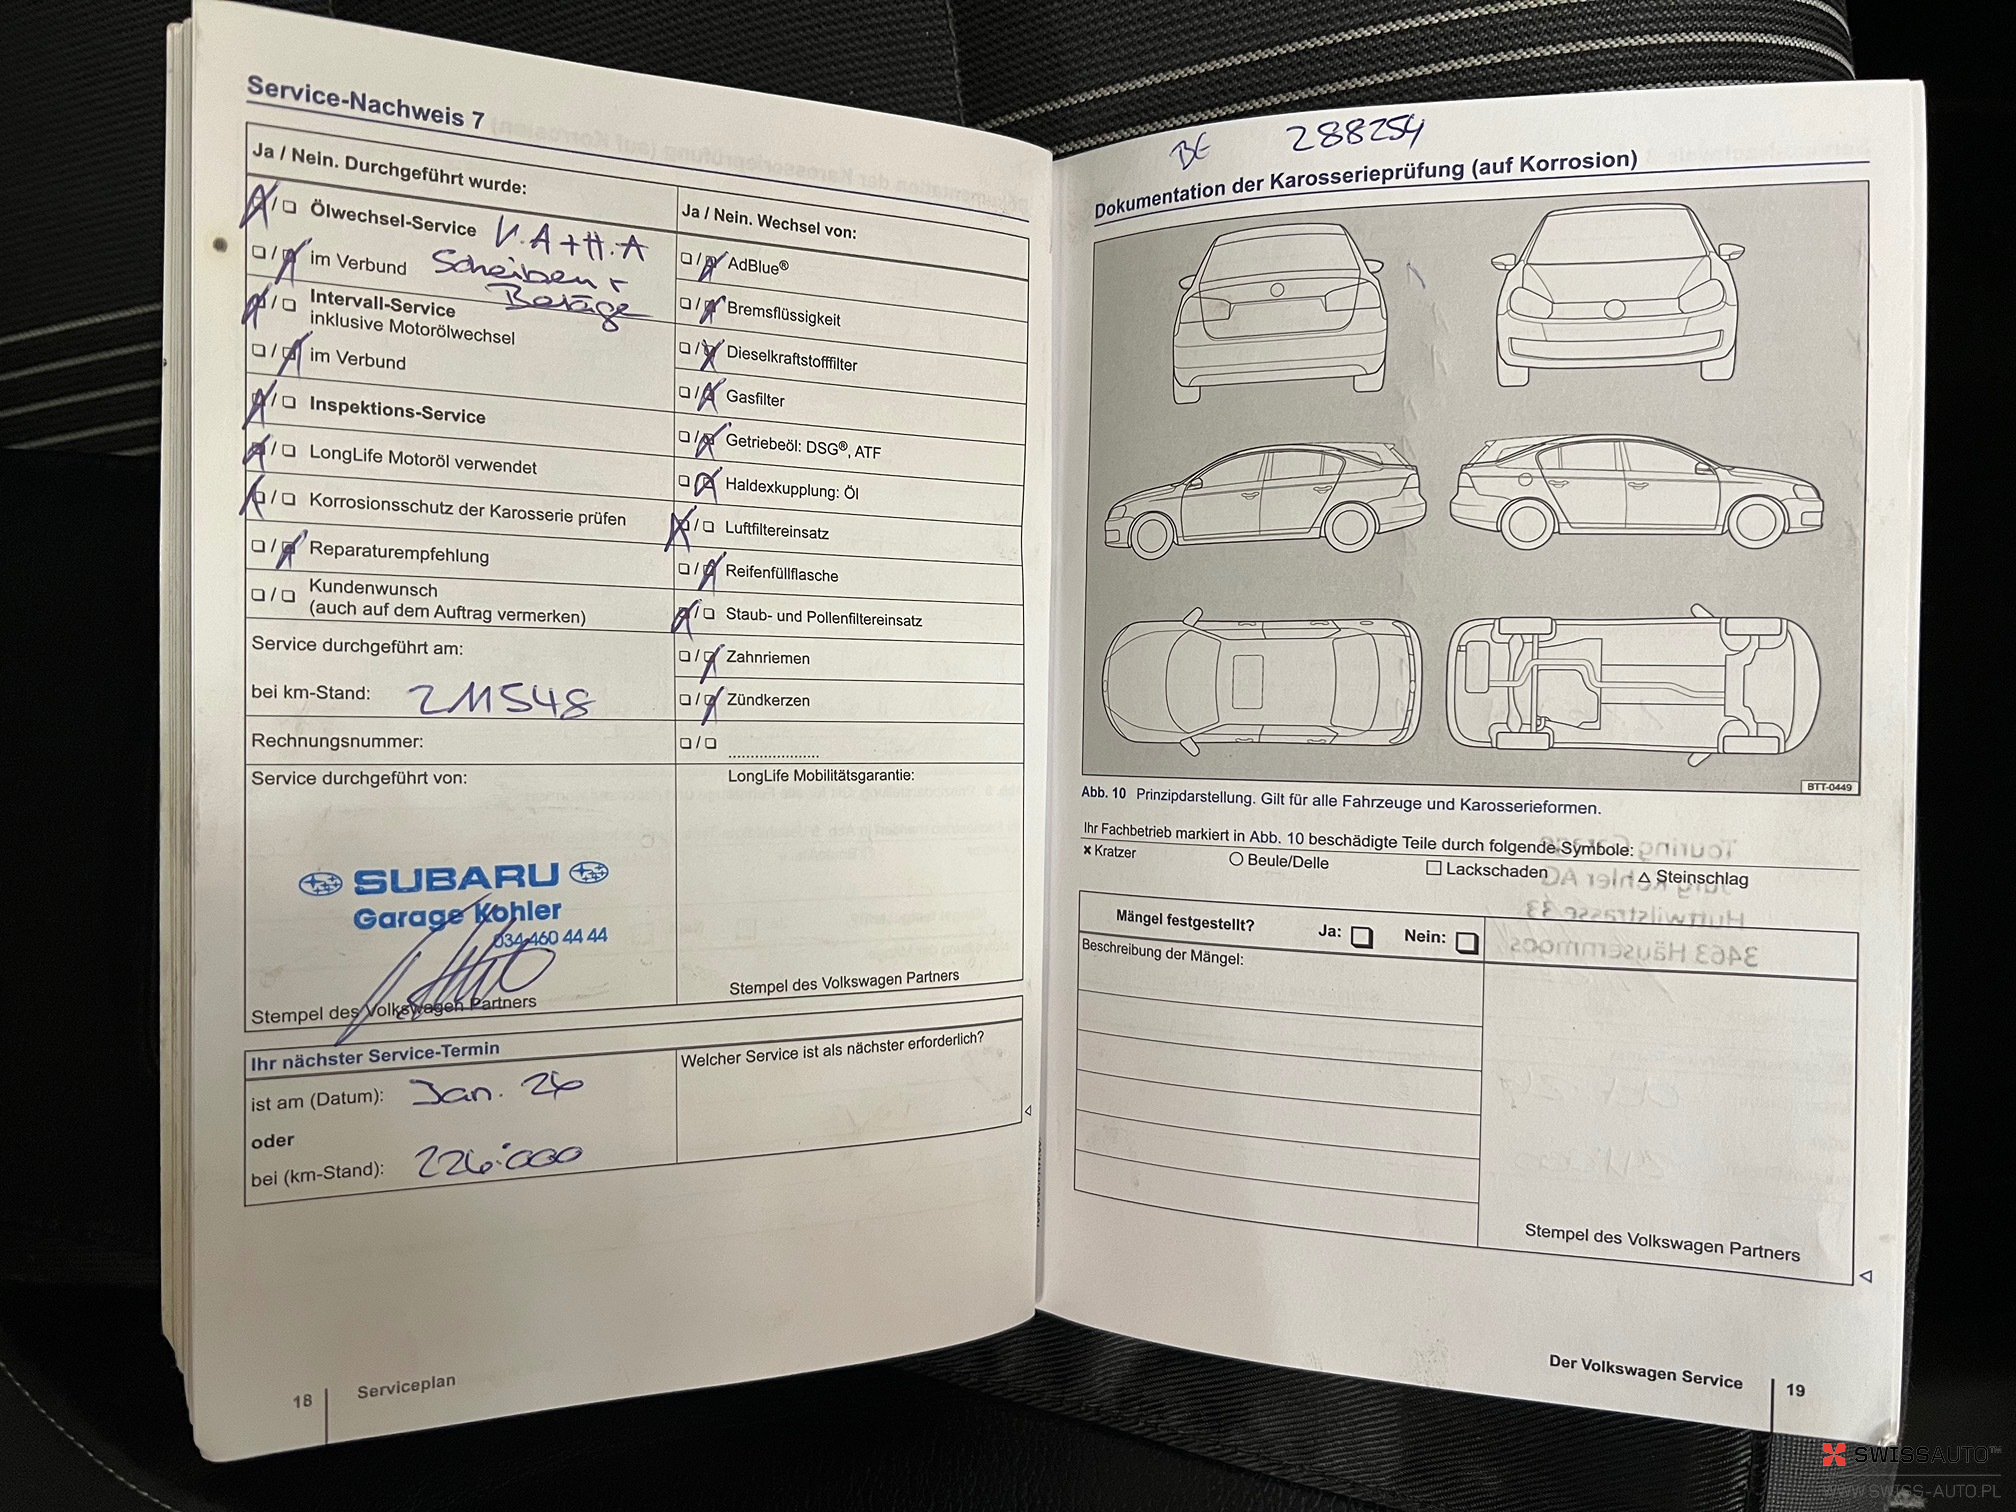 Service-Nachweis 7
Ja / Nein. Durchgeführt wurde:
Ölwechsel-Service V.A+H.A
im Verbund Scheiben +
Beläge
Intervall-Service
inklusive Motorölwechsel
im Verbund
Inspektions-Service
LongLife Motoröl verwendet
Korrosionsschutz der Karosserie prüfen
Reparaturempfehlung
Kundenwunsch
(auch auf dem Auftrag vermerken)
Service durchgeführt am:
bei km-Stand: 211548
Rechnungsnummer:
Service durchgeführt von:
SUBARU
Garage Kohler
034 460 44 44
Stempel des Volkswagen Partners
Ja / Nein. Wechsel von:
AdBlue®
Bremsflüssigkeit
Dieselkraftstofffilter
Gasfilter
Getriebeöl: DSG®, ATF
Haldexkupplung: Öl
Luftfiltereinsatz
Reifenfüllflasche
Staub- und Pollenfiltereinsatz
Zahnriemen
Zündkerzen
LongLife Mobilitätsgarantie:
Stempel des Volkswagen Partners
Ihr nächster Service-Termin
ist am (Datum): Jan. 26
oder
bei (km-Stand): 226.000
Welcher Service ist als nächster erforderlich?
18 Serviceplan
BE 288254
Dokumentation der Karosserieprüfung (auf Korrosion)
BTT-0449
Abb. 10 Prinzipdarstellung. Gilt für alle Fahrzeuge und Karosserieformen.
Ihr Fachbetrieb markiert in Abb. 10 beschädigte Teile durch folgende Symbole:
Kratzer Beule/Delle Lackschaden Steinschlag
Mängel festgestellt? Ja: Nein:
Beschreibung der Mängel:
Stempel des Volkswagen Partners
Der Volkswagen Service 19
SWISSAUTO™
WWW.SWISS-AUTO.PL